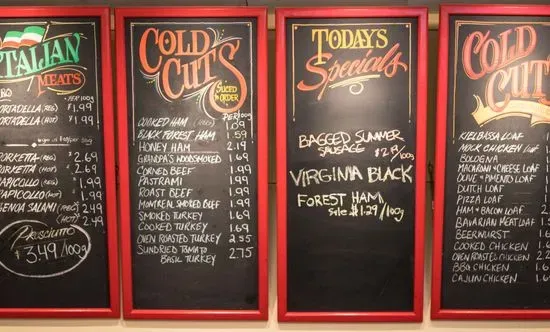 ITALIAN
MEATS
PER 100g
RTADELLA (REG) $1.99
RTADELLA (HOT) $1.99
PORKETTA (REG) $2.69
PORKETTA (HOT) $2.69
CAPICOLLO (REG) $1.99
CAPICOLLO (HOT) $1.99
GENOA SALAMI (REG) 2.49
(HOT) 2.49
Prosciutto
$3.49/100g
COLD
CUTS
SLICED
TO
ORDER
PER
100g
COOKED HAM (REG) 1.09
BLACK FOREST HAM 1.59
HONEY HAM 2.19
GRANDPA'S WOODSMOKED 1.69
CORNED BEEF 1.69
PASTRAMI 1.69
ROAST BEEF 1.69
MONTREAL SMOKED BEEF 1.69
SMOKED TURKEY 1.69
COOKED TURKEY 1.69
OVEN ROASTED TURKEY 2.55
SUNDRIED TOMATO
BASIL TURKEY 2.75
TODAY'S
Specials
BAGGED SUMMER
SAUSAGE $2.19/100g
VIRGINIA BLACK
FOREST HAM
Sale $1.29/100g
COLD
CUTS
KIELBASSA LOAF
MOCK CHICKEN LOAF
BOLOGNA
MACARONI & CHEESE LOAF
OLIVE & PIMENTO LOAF
DUTCH LOAF
PIZZA LOAF
HAM & BACON LOAF
BAVARIAN MEATLOAF
BEERWURST
COOKED CHICKEN
OVEN ROASTED CHICKEN
BBQ CHICKEN
CAJUN CHICKEN